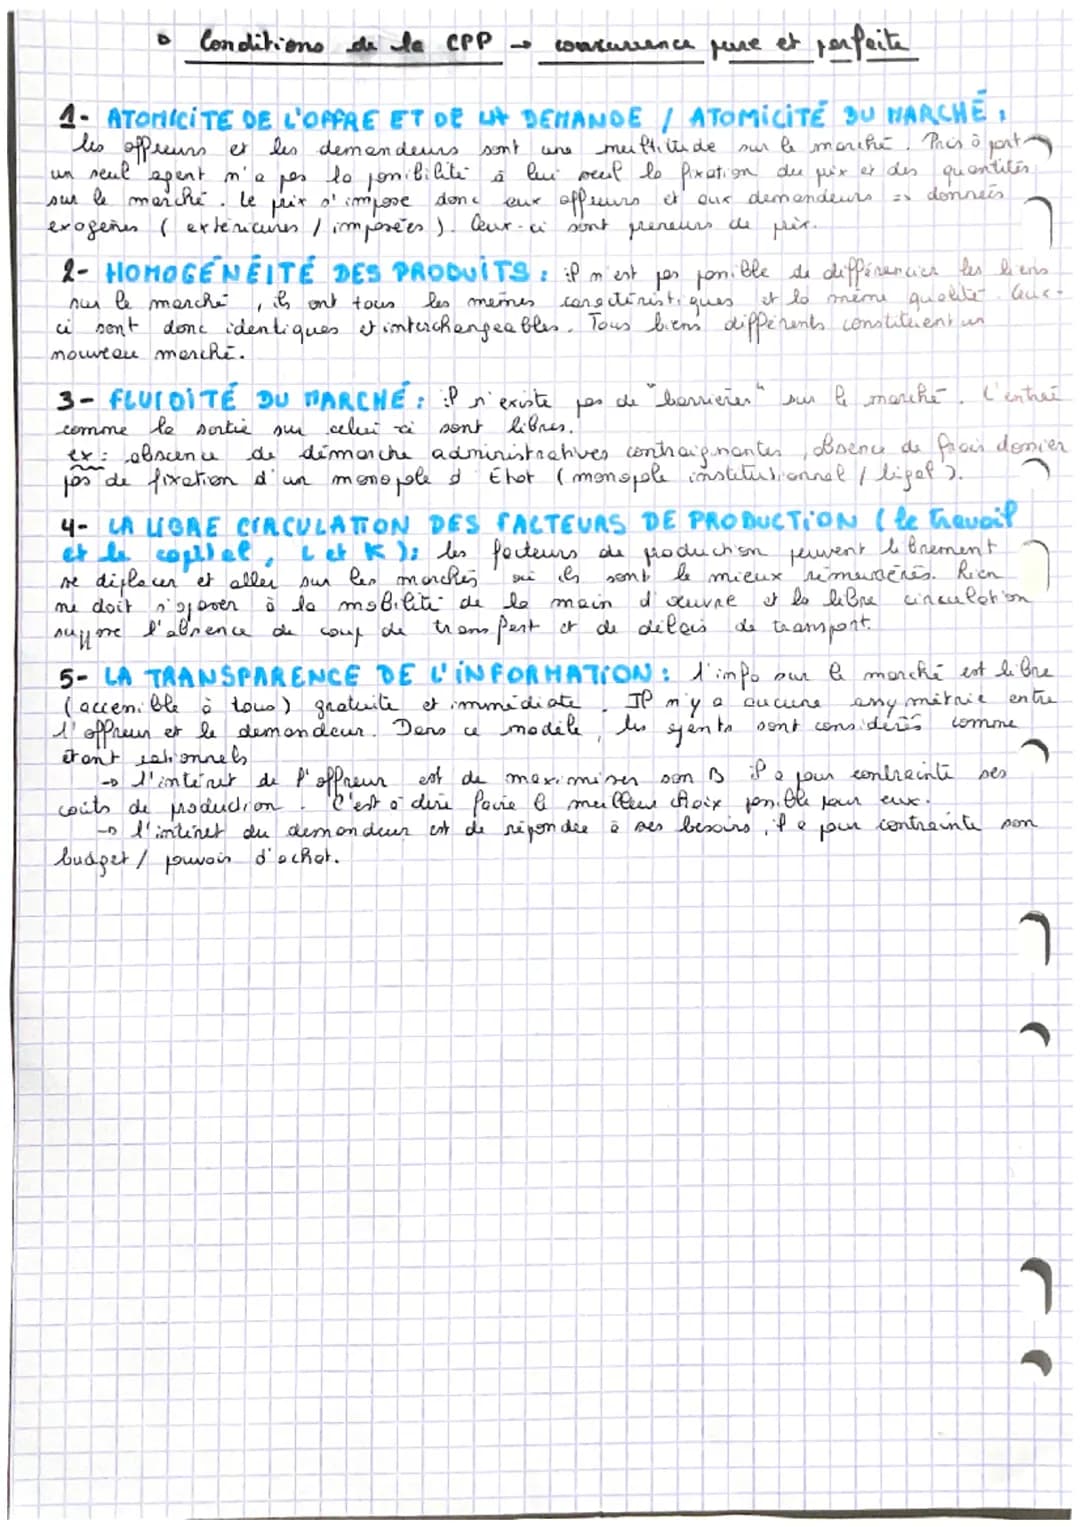 Conditions de la CPP → concurrence pure et parfaite
1- ATOMICITÉ DE L'OFFRE ET DE LA DEMANDE / ATOMICITÉ DU MARCHÉ :
les offreurs et les demandeurs sont une multitude sur le marché. Pris à part
un seul agent n'a pas la possibilité à lui seul la fixation du prix et des quantités
sur le marché. Le prix s'impose donc aux offreurs et aux demandeurs => données
exogènes (extérieures / imposées). Ceux-ci sont preneurs de prix.
2- HOMOGÉNÉITÉ DES PRODUITS : il n'est pas possible de différencier les biens
sur le marché, ils ont tous les mêmes caractéristiques et la même qualité. Ceux-
ci sont donc identiques et interchangeables. Tous biens différents constituent un
nouveau marché.
3- FLUIDITÉ DU MARCHÉ : il n'existe pas de "barrières" sur le marché. L'entrée
comme la sortie sur celui-ci sont libres.
ex : abscence de démarche administratives contraignantes, absence de frais dossier
pas de fixation d'un monopole d'État (monopole institutionnel / légal).
4- LA LIBRE CIRCULATION DES FACTEURS DE PRODUCTION (le travail
et le capital, L et K) : les facteurs de production peuvent librement
se déplacer et aller sur les marchés où ils sont le mieux rémunérés. Rien
ne doit s'opposer à la mobilité de la main d'œuvre et la libre circulation
suppose l'absence de coup de transport et de délais de transport.
5- LA TRANSPARENCE DE L'INFORMATION : l'info sur le marché est libre
(accessible à tous) gratuite et immédiate. Il n'y a aucune assymétrie entre
l'offreur et le demandeur. Dans ce modèle, les agents sont considérés comme
étant rationnels
→ l'intérêt de l'offreur est de maximiser son B il a pour contrainte ses
coûts de production. C'est à dire faire le meilleur choix possible pour eux.
→ l'intérêt du demandeur est de répondre à ses besoins, il a pour contrainte son
budget / pouvoir d'achat.